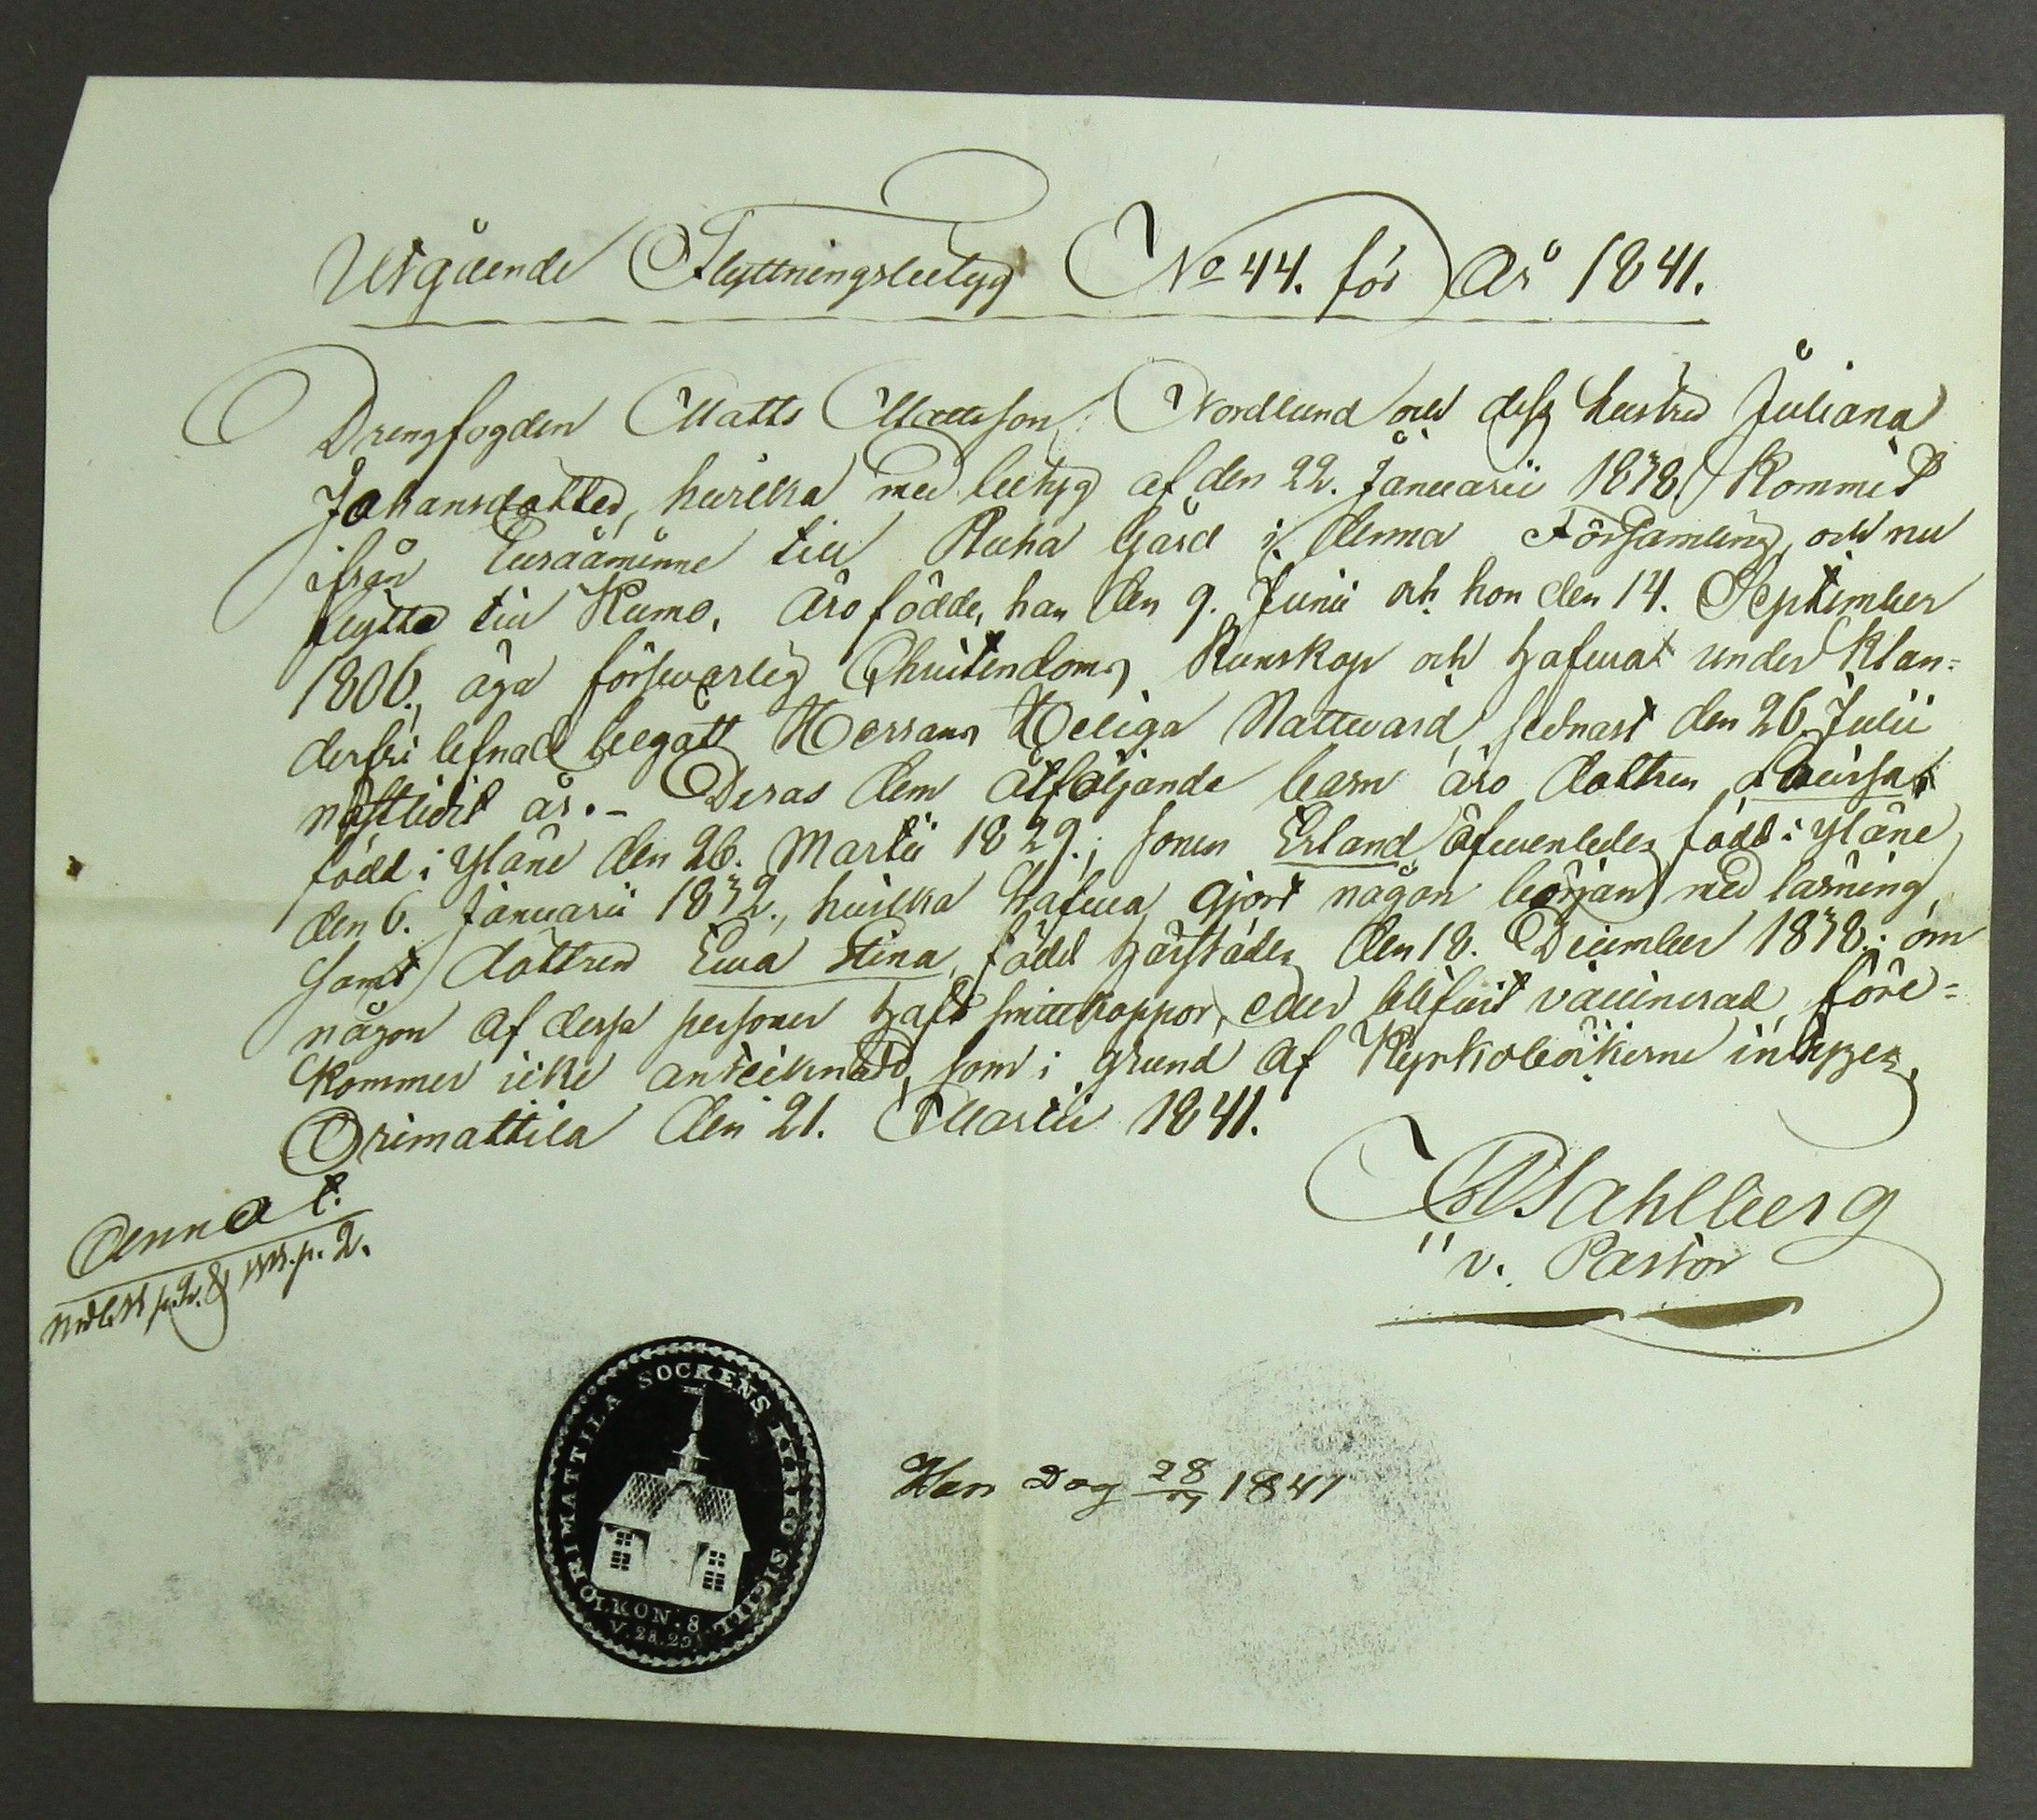 Utgående Flyttningsbetyg No 44. för År 1841.
Drengfogden Matts Mattsson Nordlund och dess hustru Juliana
Johansdotter, hvilka med betyg af den 22. Januarii 1838. kommit
ifrån Euraåminne till Ruha Gård i denna Församling, och nu
flytta till Kumo, äro födde, han den 9. Junii och hon den 14. September
1806., äga försvarlig Christendoms Kunskap och hafva under klan=
derfri lefnad begått Herrans Heliga Nattvard sednast den 26. Julii
nästledit år. - Deras dem åtföljande barn äro dottren Lovisa
född i Yläne den 26. Martii 1829.; sonen Erland äfvenledes född i Yläne
den 6. Januarii 1832., hvilka hafva gjort någon början med läsning,
samt dottren Ewa Stina, född härstädes den 18. December 1838.; om
någon af dessa personer haft smittkoppor, eller blifvit vaccinerad, före=
kommer icke antecknadt, som i grund af Kyrkoböckerne intyges,
Orimattila den 21. Martii 1841.
Wahlberg
v. Pastor
Annot.
p. 2.
ORIMATTILA SOCKENS KYRKO SIGILL
I. KON. 8.
V. 28. 29.
Dag 28/ 1841